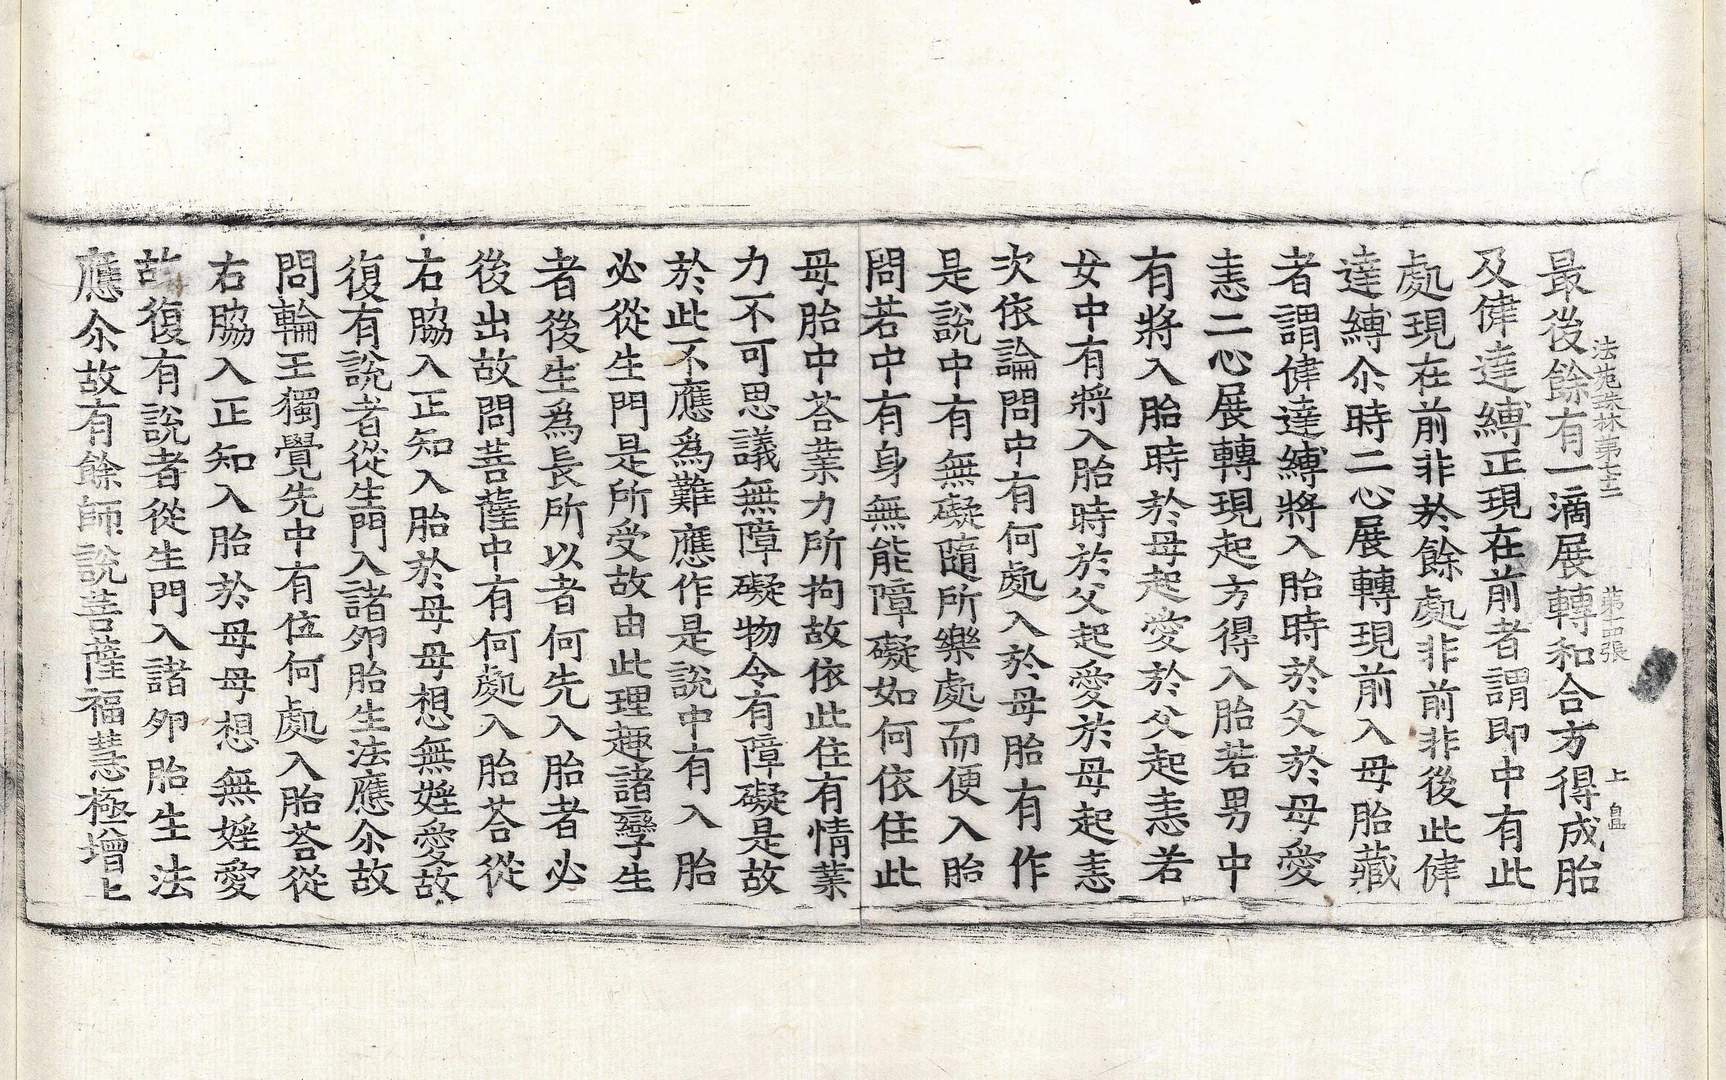 法苑珠林第七十二　第十四張　上　皂
最後餘有一滴展轉和合方得成胎
及健達縛正現在前者謂即中有此
處現在前非於餘處非前非後此健
達縛尒時二心展轉現前入母胎藏
者謂健達縛將入胎時於父於母愛
恚二心展轉現起方得入胎若男中
有將入胎時於母起愛於父起恚若
女中有將入胎時於父起愛於母起恚
次依論問中有何處入於母胎有作
是說中有無礙隨所樂處而便入胎
問若中有身無能障礙如何依住此
母胎中荅業力所拘故依此住有情業
力不可思議無障礙物令有障礙是故
於此不應爲難應作是說中有入胎
必從生門是所受故由此理趣諸孿生
者後生爲長所以者何先入胎者必
後出故問菩薩中有何處入胎荅從
右脇入正知入胎於母母想無婬愛故
復有說者從生門入諸卵胎生法應尒故
問輪王獨覺先中有位何處入胎荅從
右脇入正知入胎於母母想無婬愛
故復有說者從生門入諸卵胎生法
應尒故有餘師說菩薩福慧極增上